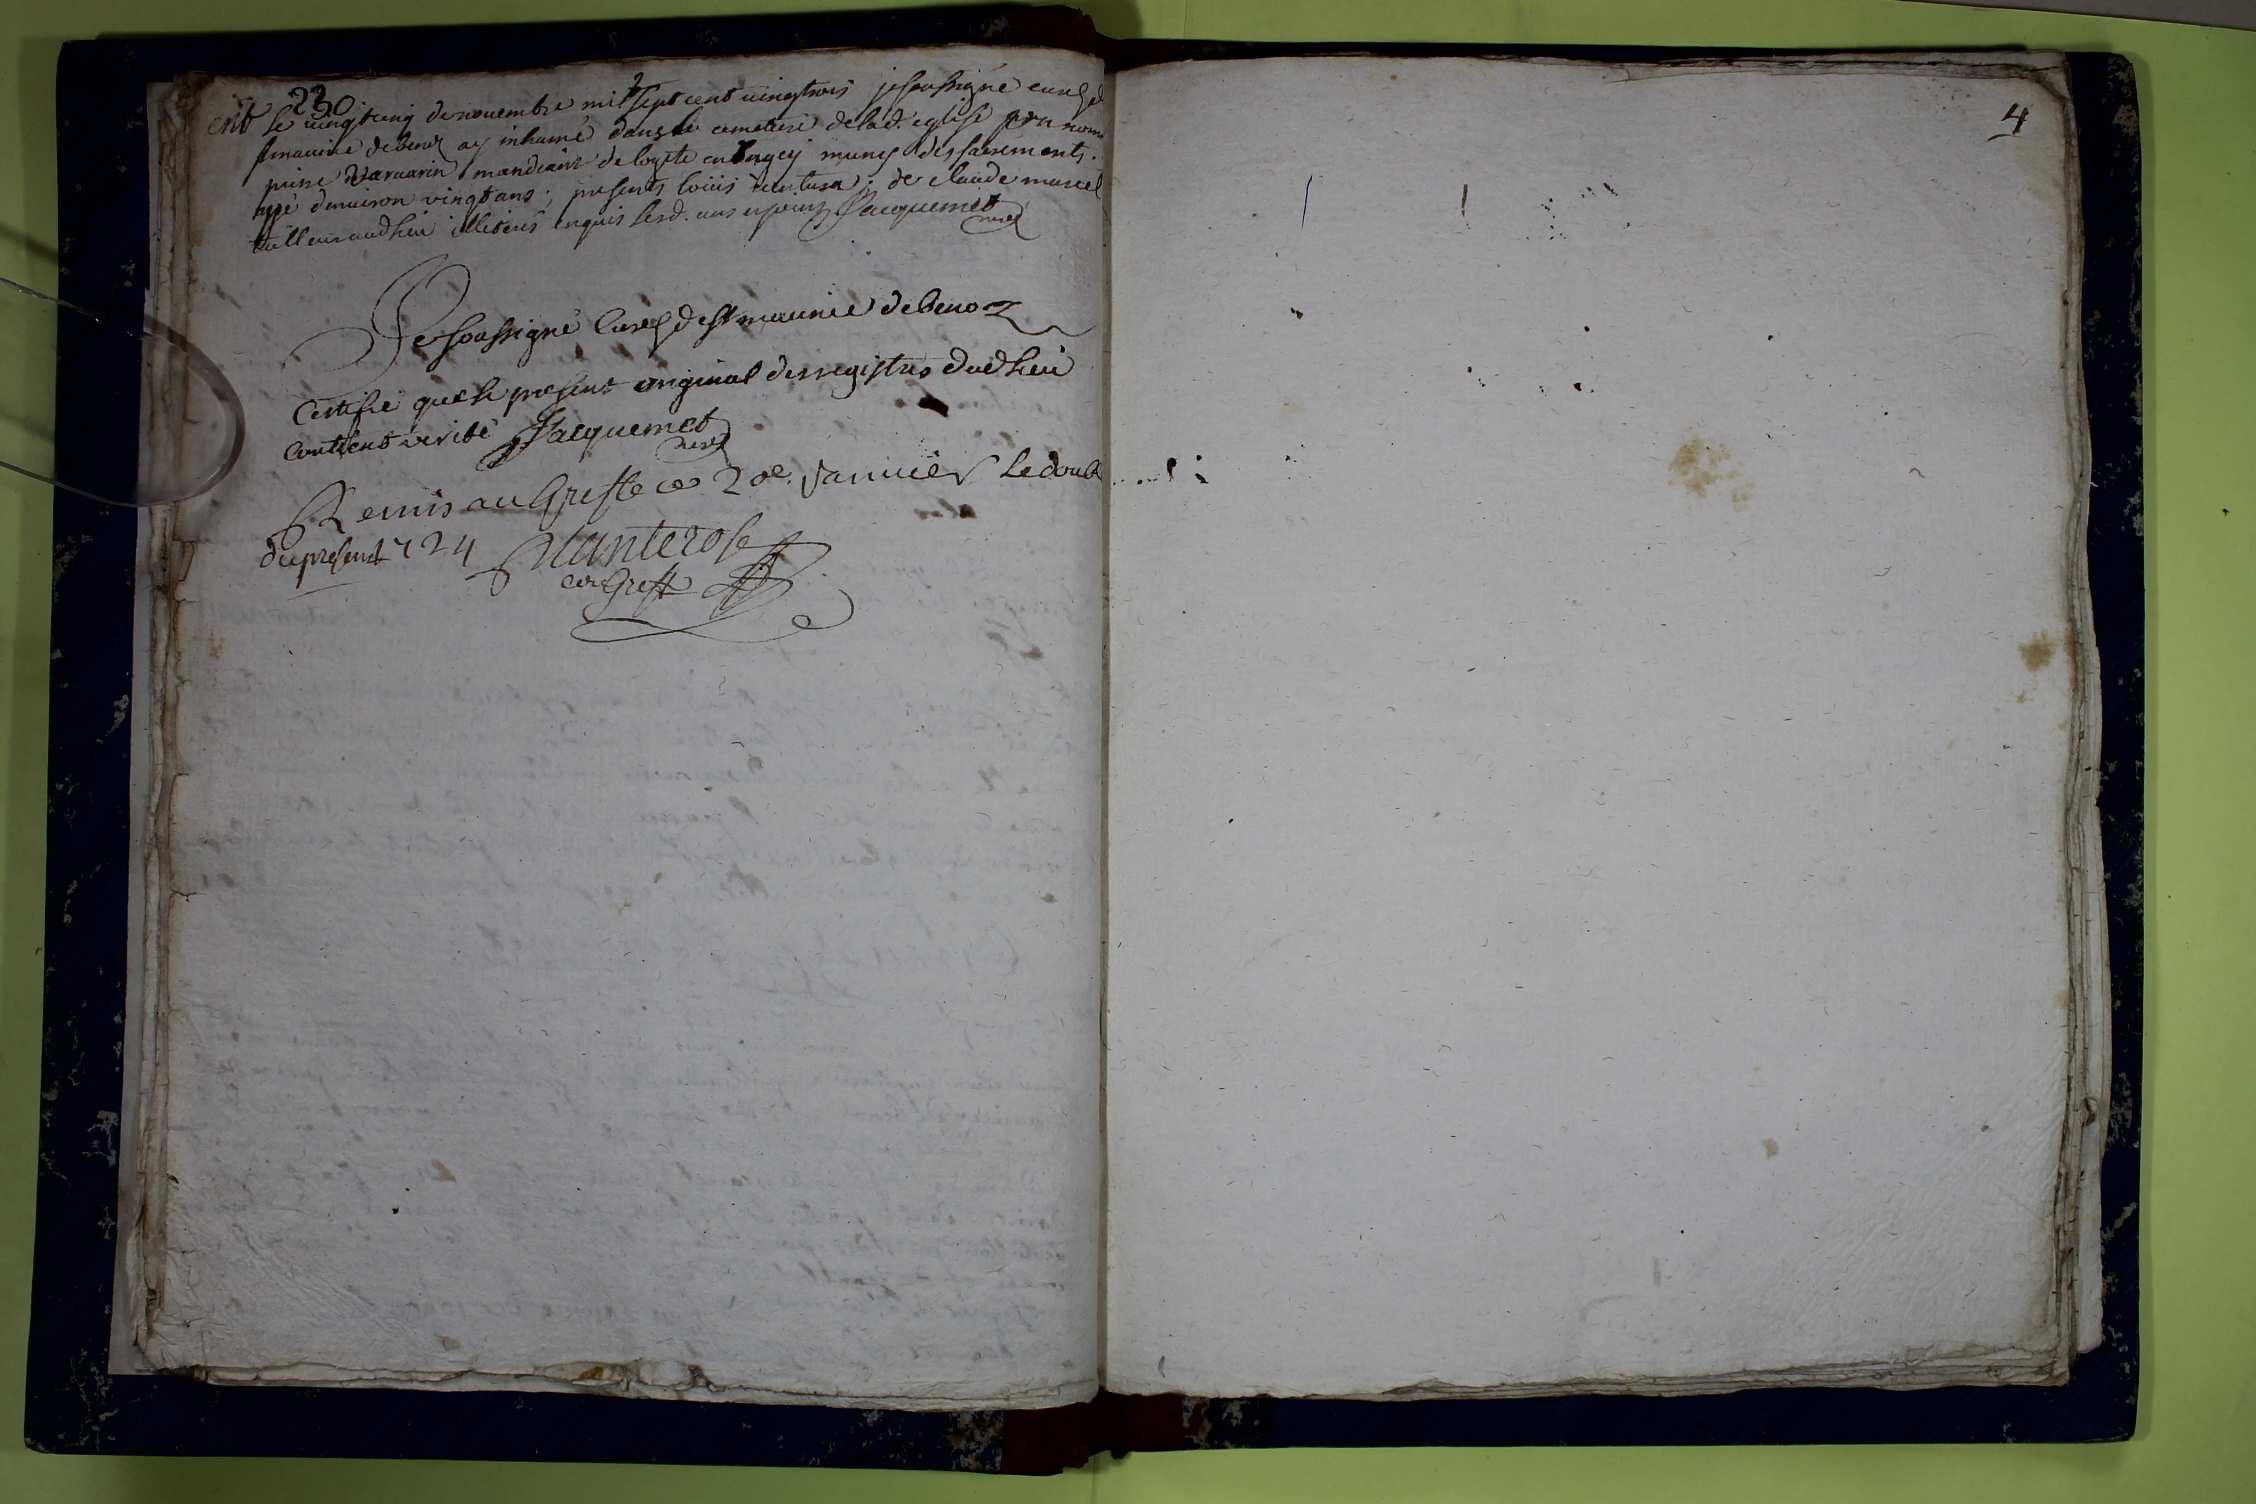 230
ent Le vingtcinq de novembre mil sept cent vingt trois je soussigné curé de
st maurice de benoz ay inhumé dans le cemetiere de la d. eglise
mandiant de en bugey muny des sacrements.
aggé d'environ vingt ans; presents loüis et de claude marcel
dud lieu illiterés enquis lesd. ans et jour Jacquemet
curé
Je soussigné Curé de st maurice de benoz
Certifie que le present original des registres dud lieu
Contient verité Jacquemet
curé
Remis au Greffe ce 20e. Janvier Le double
du present 724 Chanterose
com Greff
4